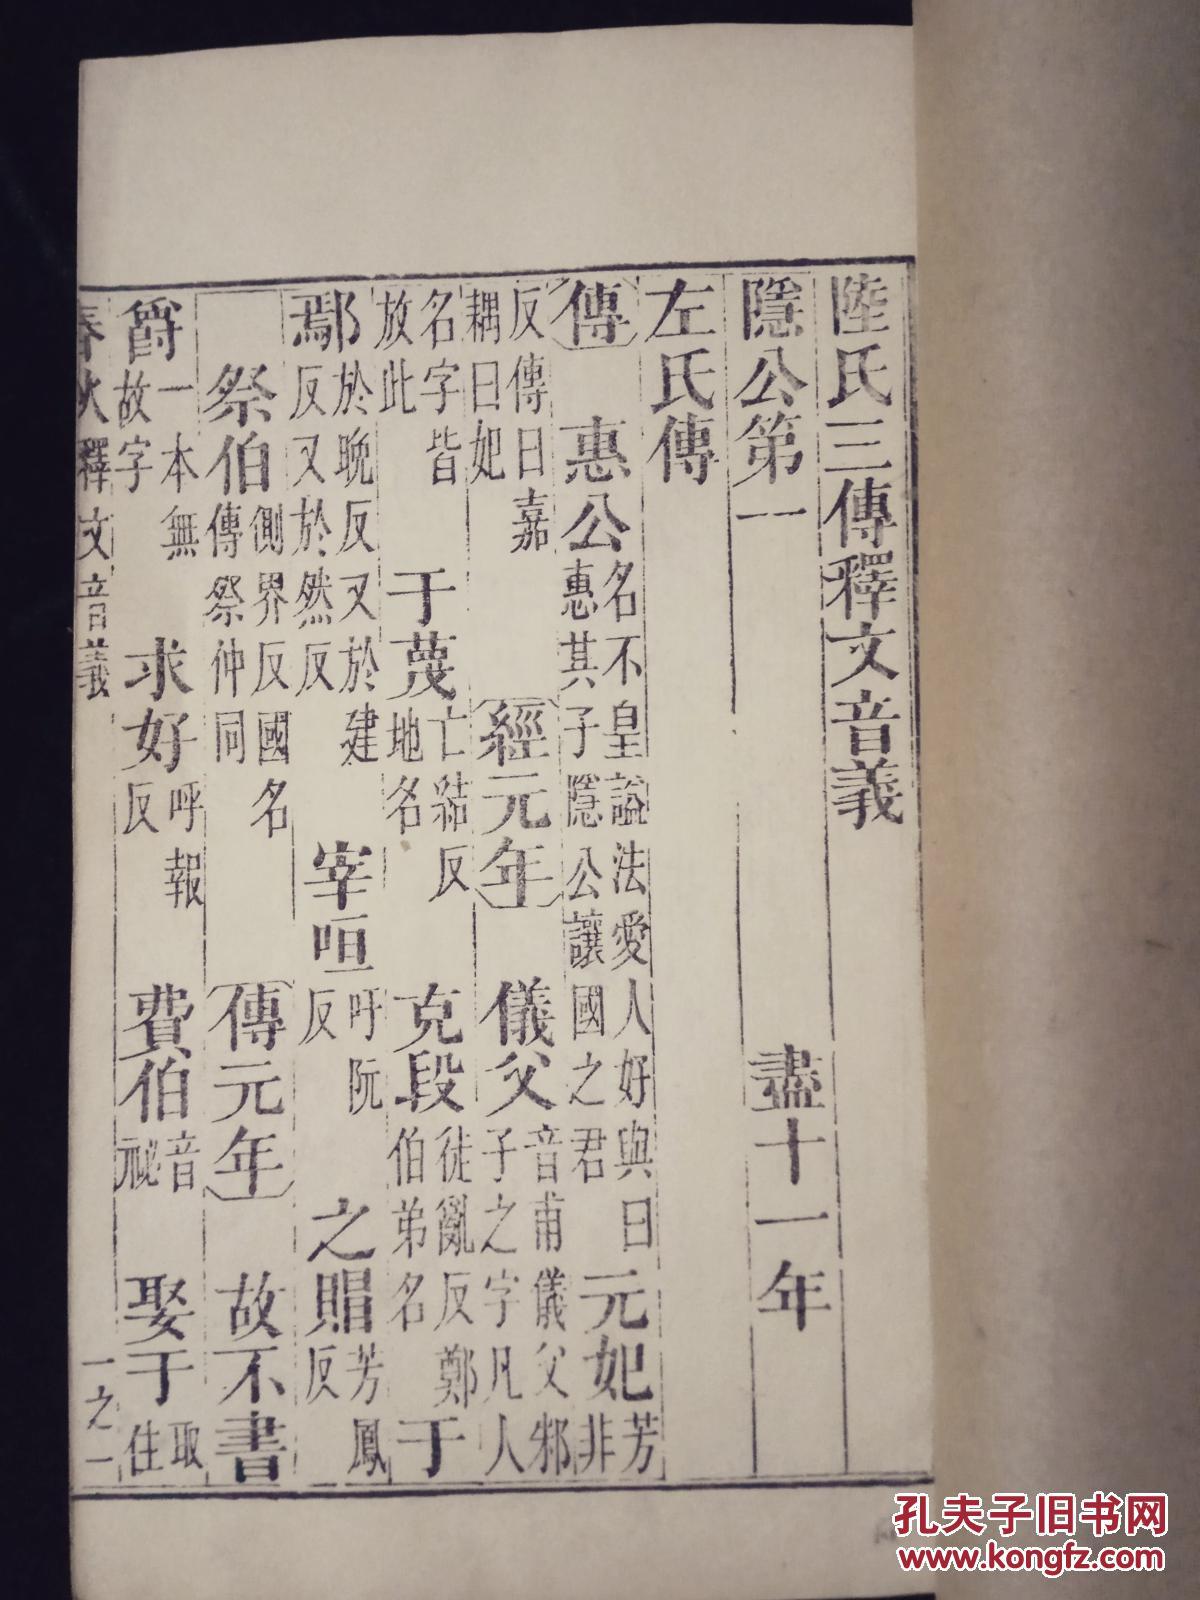 陸氏三傳釋文音義
隱公第一 盡十一年
左氏傳
傳 惠公名不皇謚法愛人好與曰惠其子隱公讓國之君 元妃芳非
反傳曰嘉耦曰妃 經元年 儀父音甫儀父邾子之字凡人
名字皆放此 于蔑亡結反地名 克段徒亂反鄭伯弟名 于
鄢於晚反又於建反又於然反 宰咺吁阮反 之賵芳鳳反
祭伯側界反國名傳祭仲同 傳元年 故不書
爵一本無故字 求好呼報反 費伯音祕 娶于取住
春秋釋文音義 一之一
孔夫子旧书网
www.kongfz.com